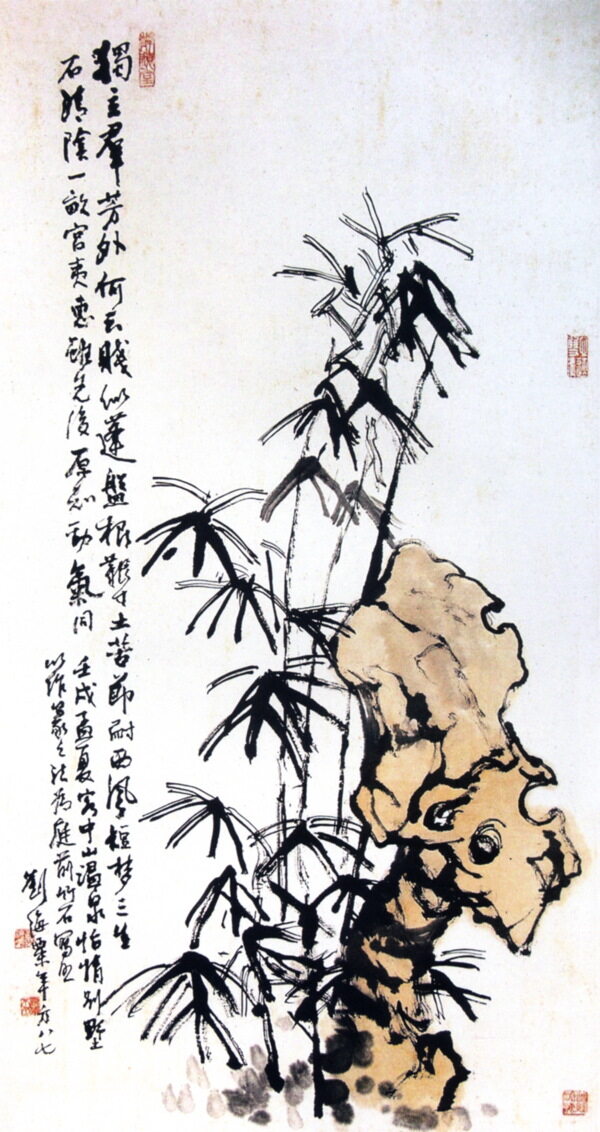 獨立羣芳外何云賤似蓬盤根艱寸土苦節耐西風短梦三生
石陰一畝宮夷惠雖先後原知勁氣同 壬戌孟夏寓中山溫泉怡情別墅
以籀篆之法為庭前竹石寫
劉海粟年方八七